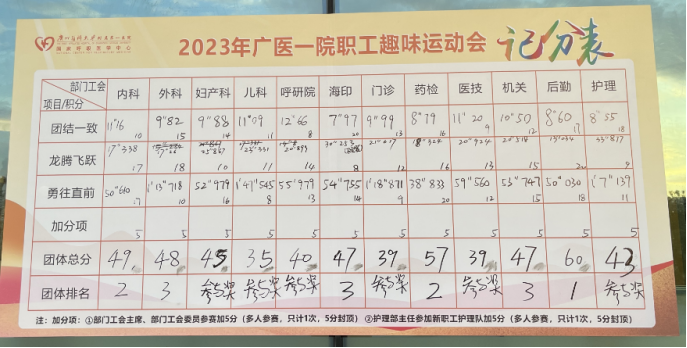 2023年广医一院职工趣味运动会 记分表
部门工会 项目/积分 内科 外科 妇产科 儿科 呼研院 海印 门诊 药检 医技 机关 后勤 护理
团结一致 11"16 10 9"82 15 9"88 14 11"09 11 12"66 8 7"97 20 9"99 13 8"79 16 11"20 9 10"50 12 8"60 17 8"55 18
龙腾飞跃 17"338 17 18 10 11 14 8 12 16 13 15 20 9
勇往直前 50"610 17 1'13"718 10 52"979 16 1'47"545 8 55"979 13 54"755 14 1'18"871 9 38"833 20 59"560 12 53"747 15 50"030 18 1'7"139 11
加分项 5 5 5 5 5 5 5 5 5 5 5 5
团体总分 49 48 45 35 40 47 39 57 39 47 60 43
团体排名 2 3 参与奖 参与奖 参与奖 3 参与奖 2 参与奖 3 1 参与奖
注：加分项：①部门工会主席、部门工会委员参赛加5分（多人参赛，只计1次，5分封顶）②护理部主任参加新职工护理队加5分（多人参赛，只计1次，5分封顶）